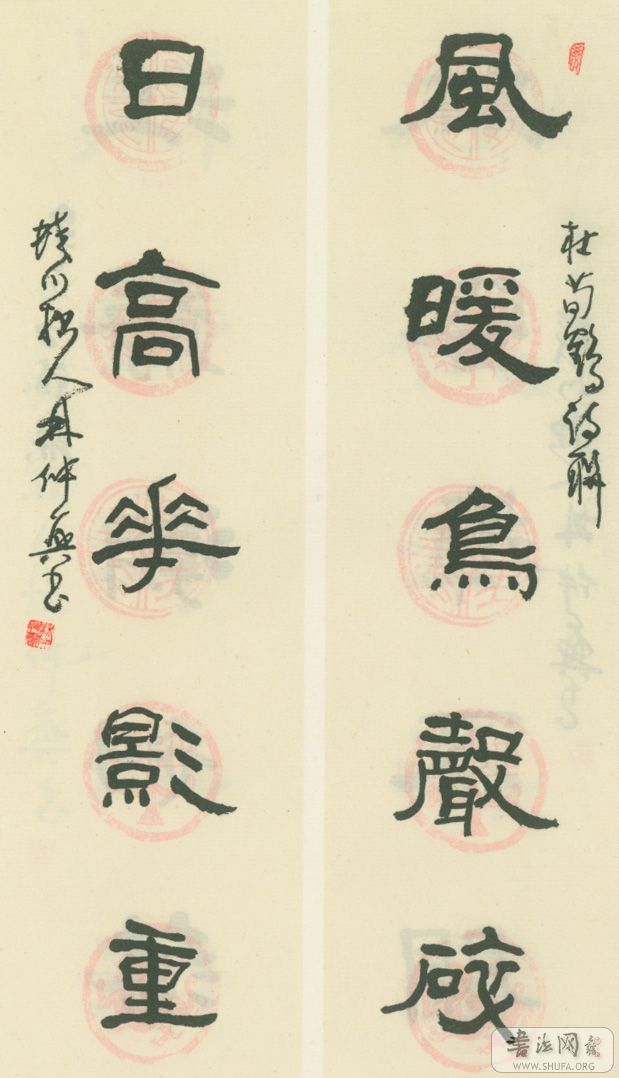 杜荀鶴詩聯
風暖鳥聲碎
日高華影重
川拙人林仲興書
書法网
WWW.SHUFA.ORG